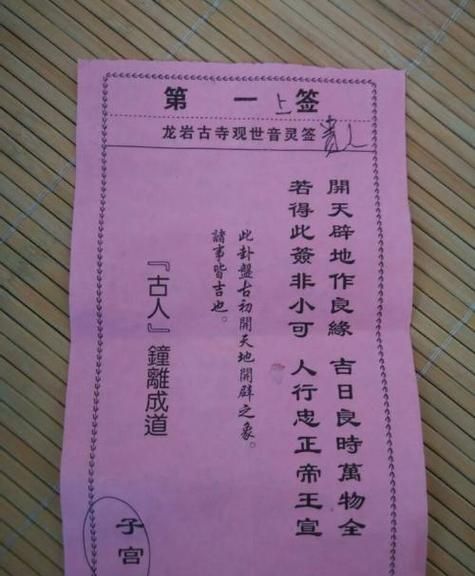 第一上签
龙岩古寺观世音灵签
贵人
開天辟地作良緣 吉日良時萬物全
若得此簽非小可 人行忠正帝王宣
此卦盤古初開天地開辟之象。
諸事皆吉也。
『古人』鐘離成道
子宫